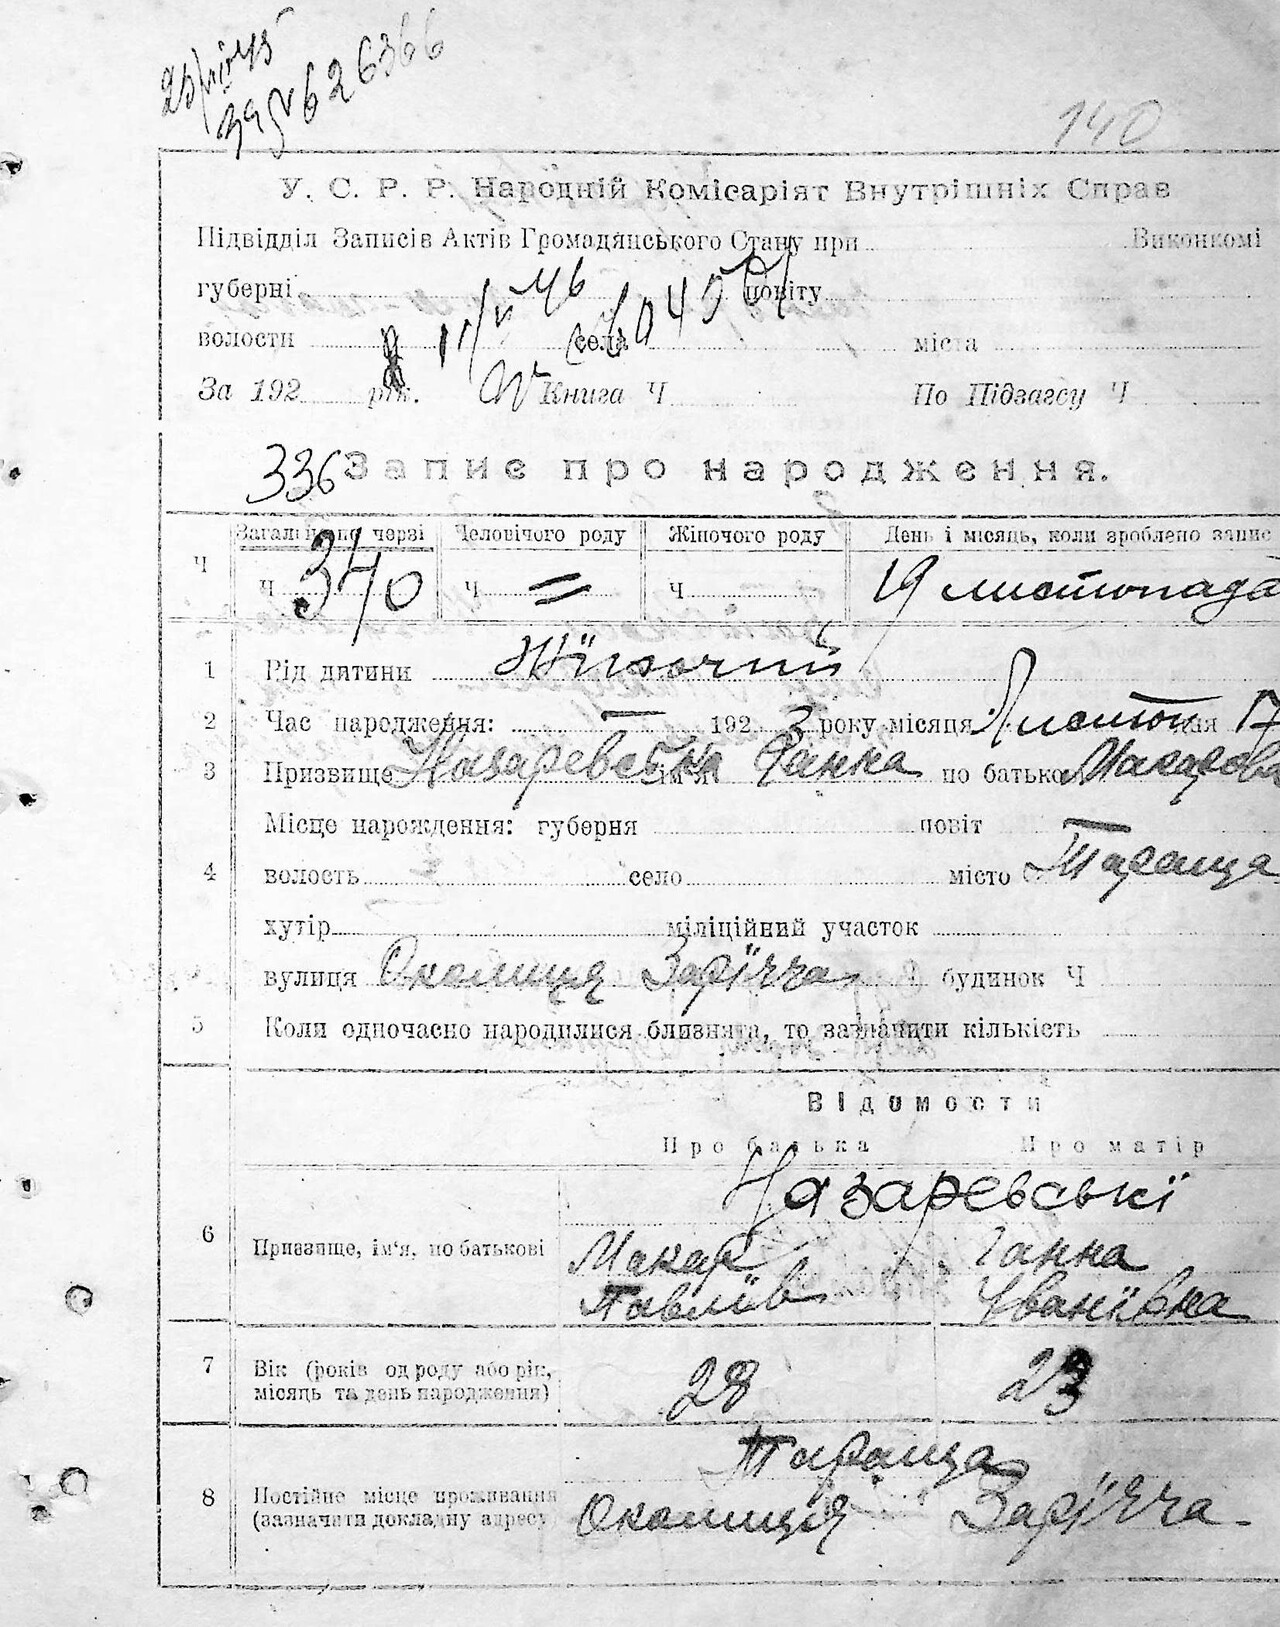 140
У. С. Р. Р. Народній Комісаріят Внутрішніх Справ
Підвідділ Записів Актів Громадянського Стану при Виконкомі
губерні повіту
волости села міста
За 192 рік. Книга Ч По Підзагсу Ч
336 Запис про народження.
Загальн. по черзі Человічого роду Жіночого роду День і місяць, коли зроблено запис
Ч Ч 340 Ч = Ч 19 листопада
1 Рід дитини Жіночий
2 Час народження: — 192 3 року місяця Листоп дня 17
3 Призвище Назаревська ім'я Ганна по батько Макарова
Місце нарождення: губерня повіт
4 волость село місто Тараща
хутір міліційний участок
вулиця Околиця Заріччя будинок Ч
5 Коли одночасно народилися близнята, то зазначити кількість
Відомости
Про батька Про матір
Назаревські
6 Призвище, ім'я, по батькові Макар Ганна
Павлів Іванівна
7 Вік (років од роду або рік, місяць та день народження) 28 23
Тараща
8 Постійне місце проживання (зазначати докладну адресу) Околиця Заріччя